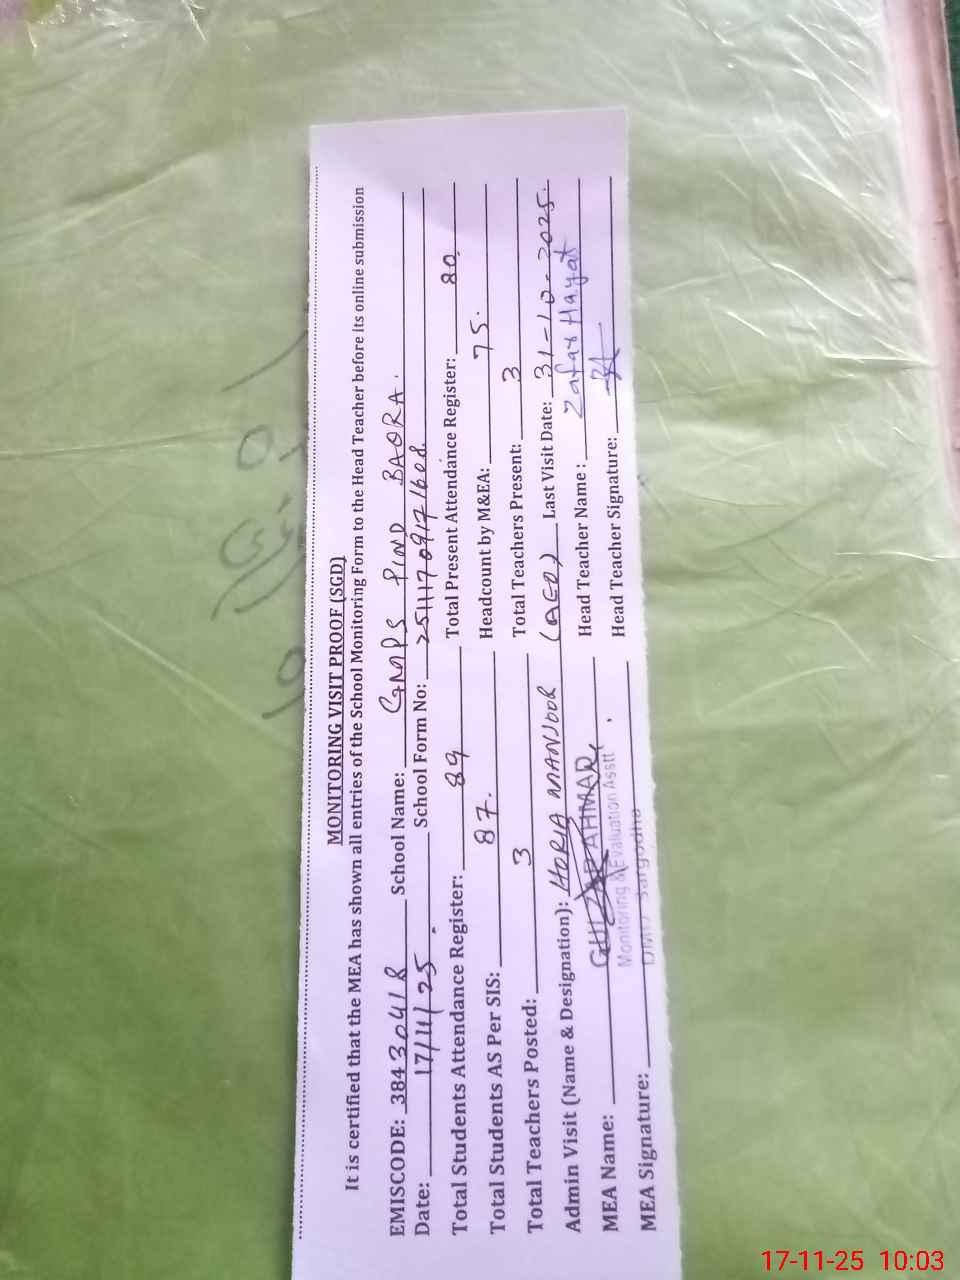 MONITORING VISIT PROOF (SGD)
It is certified that the MEA has shown all entries of the School Monitoring Form to the Head Teacher before its online submission
EMISCODE: 38430418 School Name: GMPS PIND BAORA.
Date: 17/11/25. School Form No:
Total Students Attendance Register: 89 Total Present Attendance Register: 80
Total Students AS Per SIS: 87. Headcount by M&EA: 75.
Total Teachers Posted: 3 Total Teachers Present: 3
Admin Visit (Name & Designation): HORIA MANJOOR (AEO) Last Visit Date: 31-10-2025.
MEA Name: GULZAR AHMAR Head Teacher Name: Zafar Hayat
Monitoring & Evaluation Asstt
MEA Signature: DMO Sargodha Head Teacher Signature:
17-11-25 10:03